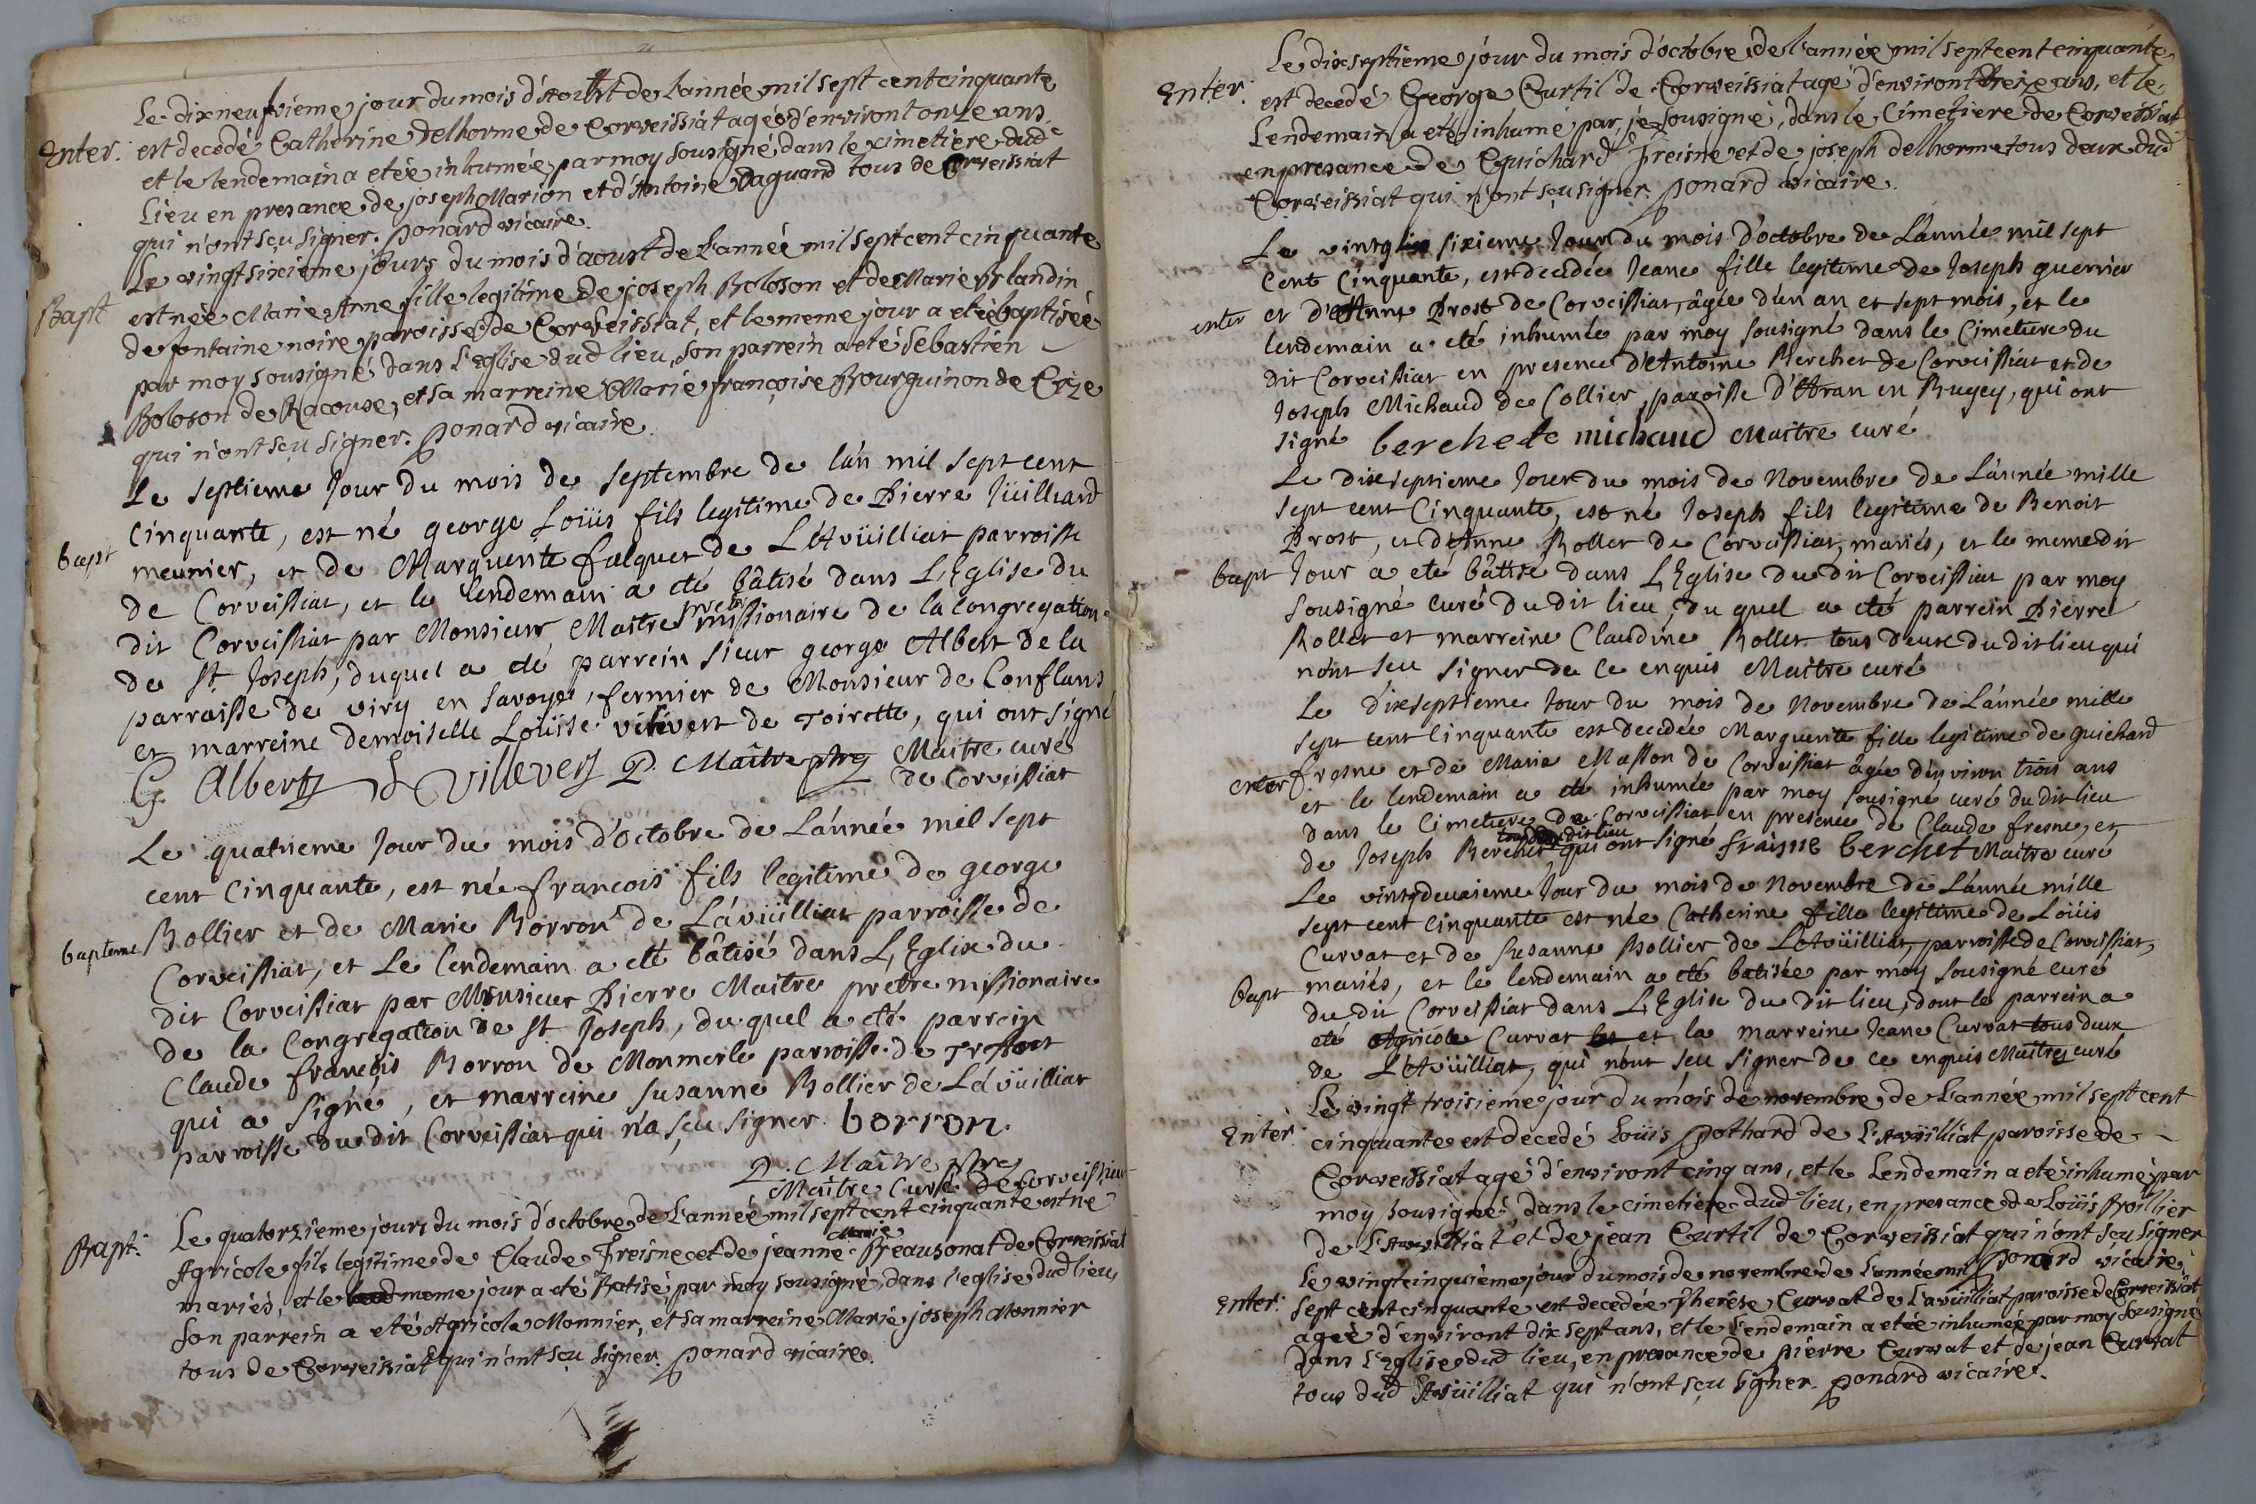 Le dixneufvieme jour du mois d'Aoust de L'année mil sept cent cinquante
Enter. est decedé Catherine Delhorme de Corveissiat agée d'environt onze ans,
et le lendemain a etée inhumée par moy sousigné dans le cimetiere dud
Lieu en presance de joseph Marion et d'Antoine Daguand tous de Corveissiat
qui n'ont sçu signer. Ponard vicaire.
Le vingt sixieme jours du mois d'aoust de L'année mil sept cent cinquante
Bapt est née Marie Anne fille legitime de joseph Boloson et de Marie Urlandin
de fontaine noire paroisse de Corveissiat, et le meme jour a eté baptisée
par moy sousigné dans L'eglise dud lieu, son parrein a eté Sebastien
Boloson de Racouse, et sa marreine Marie françoise Bourguinon de Cize
qui n'ont sçu signer. Ponard vicaire.
Le septieme Jour du mois de septembre de l'an mil sept cent
Cinquante, est né george Loüis fils legitime de Pierre Jüilliard
bapt meunier, et de Marguerite falquet de L'Avüilliat parroisse
de Corveissiat, et le lendemain a eté bâtisé dans L'Eglise du
dit Corveissiat par Monsieur Maitre pretre missionaire de la congregation
de St. Joseph, duquel a eté parrein sieur george Albert de la
parroisse de viry en savoye, fermier de Monsieur de Conflans
et marreine demoiselle Loüisse villevert de Toirette, qui ont signé
G. Albert L villevert P. Maître ptre Maitre curé
de Corveissiat
Le quatrieme Jour du mois d'octobre de L'année mil sept
cent Cinquante, est né francois fils legitime de george
bapteme Bollier et de Marie Borron de L'avüilliat parroisse de
Corveissiat, et Le lendemain a eté bâtisé dans L'Eglise du
dit Corveissiat par Monsieur Pierre Maitre pretre missionaire
de la Congregation de St. Joseph, du quel a eté parrein
Claude françois Borron de Monmerle parroisse de Treffort
qui a signé, et marreine susanne Bollier de L'avüilliat
parroisse du dit Corveissiat qui n'a sçu signer borron.
P. Maître ptre
Maitre Curé de Corveissiat
Bapt. Le quatorzieme jours du mois d'octobre de L'année mil sept cent cinquante est né
Marie
Agricole fils legitime de Claude Freisne et de jeanne Breausonat de Corveissiat
mariés, et le meme jour a eté Batisé par moy sousigné, dans l'eglise dud lieu,
son parrein a eté Agricole Monnier, et sa marreine Marie joseph Monnier
tous de Corveissiat qui n'ont sçu signer. Ponard vicaire.
Le dix septieme jour du mois d'octobre de L'année mil sept cent cinquante,
Enter. est decedé George Curtil de Corveissiat agé d'environt treize ans, et le
Lendemain a eté inhumé par je sousigné, dans le Cimetiere de Corveissiat
en presance de Guichard Freisne et de joseph delhorme tous deux dud
Corveissiat qui n'ont sçu signer. Ponard vicaire.
Le vingt sixieme Jour du mois d'octobre de L'année mil sept
Cent Cinquante, est decedée Jeane fille legitime de Joseph guerrier
enter et d'Anne Prost de Corveissiat, âgée d'un an et sept mois, et le
lendemain a eté inhumée par moy sousigné dans le Cimetiere du
dit Corveissiat en presence d'Antoine Berchet de Corveissiat et de
Joseph Michaud de Collier, paroisse d'Aran en Bugey, qui ont
signé berchet michaud Maitre curé
Le dixseptieme Jour du mois de Novembre de L'année mille
sept cent Cinquante, est né Joseph fils legitime de Benoit
Prost, et d'Anne Rollet de Corveissiat, mariés, et le meme dit
bapt Jour a eté bâtisé dans L'Eglise du dit Corveissiat par moy
sousigné curé du dit lieu, du quel a eté parrein Pierre
Rollet et marreine Claudine Rollet tous deux du dit lieu qui
n'ont seu signer de ce enquis Maitre curé
Le dixseptieme Jour du mois de Novembre de L'année mille
sept cent Cinquante est decedée Marguerite fille legitime de guichard
enter fresne et de Marie Masson de Corveissiat âgée d'environ trois ans
et le lendemain a eté inhumée par moy sousigné curé du dit lieu
dans le Cimetiere de Corveissiat en presence de Claude fresne, et
tous deux du dit lieu
de Joseph Berchet qui ont signé fraisne berchet Maitre curé
Le vingtdeuxieme Jour du mois de Novembre de L'année mille
sept cent Cinquante est née Catherine fille legitime de Loüis
Curvat et de Susanne Bollier de L'Avüilliat, parroisse de Corveissiat,
bapt mariés, et le lendemain a eté batisée par moy sousigné curé
du dit Corveissiat dans L'Eglise du dit lieu, dont le parrein a
eté Agricole Curvat et la marreine Jeane Curvat tous deux
de L'Avüilliat, qui n'ont seu signer de ce enquis Maitre curé
Le vingt troisieme jour du mois de novembre de L'année mil sept cent
Enter. cinquante est decedé Loüis Pothard de L'Avüilliat paroisse de
Corveissiat agé d'environt cinq ans, et le Lendemain a eté inhumé par
moy sousigné dans le cimetiere dud lieu, en presance de Loüis Bollier
de L'Avüilliat et de jean Curtil de Corveissiat qui n'ont sçu signer
Ponard vicaire.
Le vingtcinquieme jour du mois de novembre de L'année mil
Enter. sept cent cinquante est decedée Therése Curvat de L'avüilliat paroisse de Corveissiat
ageé d'environt dix sept ans, et le Lendemain a etée inhumée par moy sousigné
dans L'Eglise dud lieu, en presance de pierre Curvat et de jean Curvat
tous dud Avüilliat qui n'ont sçu signer. Ponard vicaire.